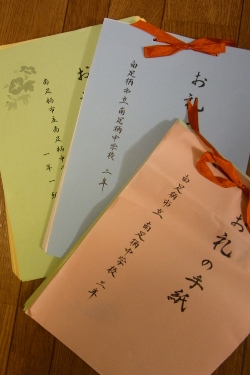 お礼の手紙
南足柄市立 南足柄中学校 三年
お礼
南足柄市立 南足柄中学校 二年
お
南足柄市立 南足柄中
一年 一